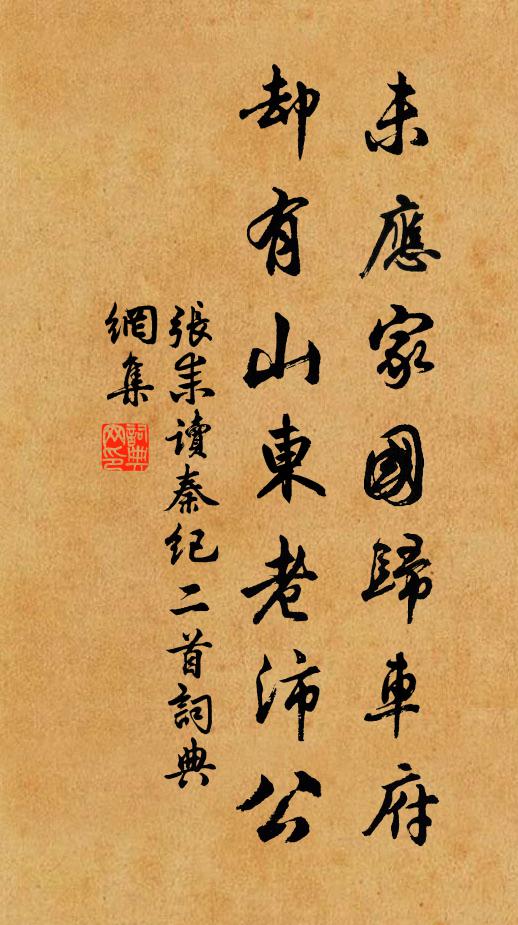 未應家國歸車府
却有山東老沛公
張耒讀秦紀二首詞典
網集
詞典
网印